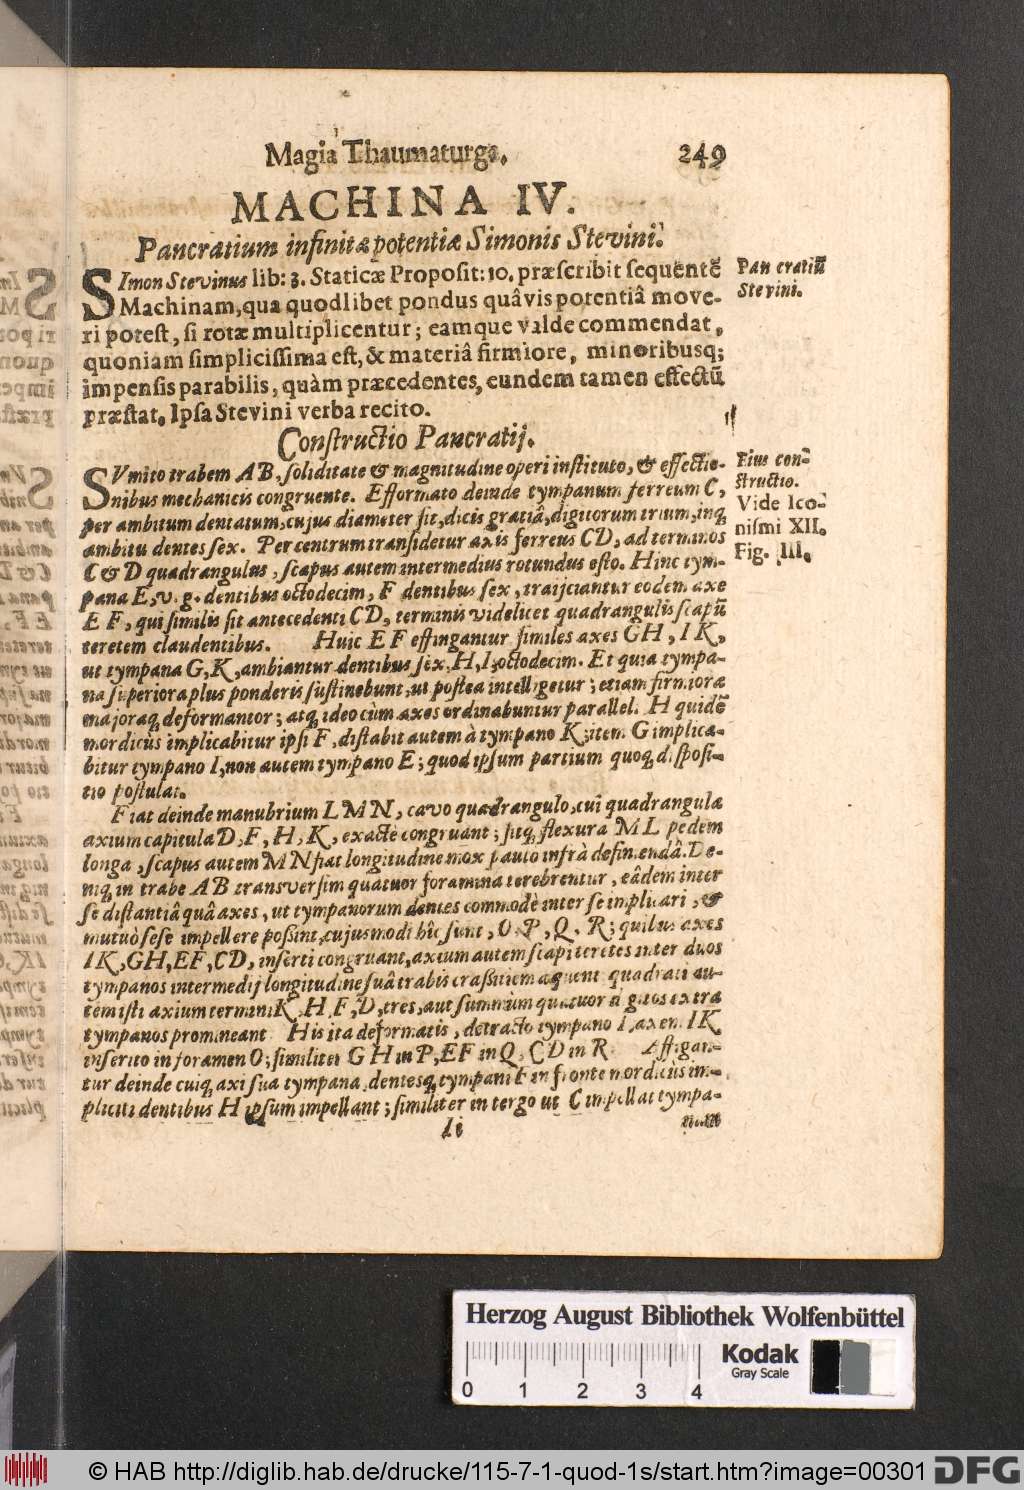 Magia Thaumaturga. 249
MACHINA IV.
Pancratium infinitæ potentiæ Simonis Stevini.
SImon Stevinus lib: 3. Staticæ Proposit: 10. præscribit sequentē
Machinam, qua quodlibet pondus quâvis potentiâ move-
ri potest, si rotæ multiplicentur; eamque valde commendat,
quoniam simplicissima est, & materiâ firmiore, minoribusq;
impensis parabilis, quàm præcedentes, eundem tamen effectū
præstat. Ipsa Stevini verba recito.
Pan cratiū
Stevini.
Constructio Pancratij.
SVmito trabem AB, soliditate & magnitudine operi instituto, & effectio-
nibus mechanicis congruente. Efformato deinde tympanum ferreum C,
per ambitum dentatum, cujus diameter sit, dicis gratiâ, digitorum trium, inq;
ambitu dentes sex. Per centrum transidetur axis ferreus CD, ad terminos
C & D quadrangulus, scapus autem intermedius rotundus esto. Hinc tym-
pana E, v. g. dentibus octodecim, F dentibus sex, traijciantur eodem axe
EF, qui similis sit antecedenti CD, terminis videlicet quadrangulis scapū
teretem claudentibus. Huic EF effingantur similes axes GH, IK,
ut tympana G, K, ambiantur dentibus sex, H, I, octodecim. Et quia tympa-
na superiora plus ponderis sustinebunt, ut postea intelligetur; etiam firmiora
majoraq; deformantor; atq; ideo cùm axes ordinabuntur parallel. H quidē
mordicùs implicabitur ipsi F, distabit autem à tympano K; item G implica-
bitur tympano I, non autem tympano E; quod ipsum partium quoq; disposi-
tio postulat.
Ejus con-
structio.
Vide Ico-
nismi XII.
Fig. III.
Fiat deinde manubrium LMN, cavo quadrangulo, cui quadrangula
axium capitula D, F, H, K, exactè congruant; sitq; flexura ML pedem
longa, scapus autem MN fiat longitudine mox paulo infrà definiendâ. De-
niq; in trabe AB transversim quatuor foramina terebrentur, eâdem inter
se distantiâ quâ axes, ut tympanorum dentes commodè inter se implicari, &
mutuò sese impellere possint, cujusmodi hîc sunt, O. P, Q, R; quibus axes
IK, GH, EF, CD, inserti congruant, axium autem scapi teretes inter duos
tympanos intermedij longitudine suâ trabis crassitiem aquent: quadrati au-
tem isti axium termini K, H, F, D, tres, aut summùm quatuor digitos extra
tympanos promineant. His ita deformatis, detracto tympano I, axem IK
inserito in foramen O; similiter GH in P, EF in Q, CD in R. Affigan-
tur deinde cuiq; axi sua tympana, dentesq; tympani F in fronte mordicùs im-
pliciti dentibus H ipsum impellant; similiter in tergo ut C impellat tympa-
Ii num
Herzog August Bibliothek Wolfenbüttel
0 1 2 3 4
Kodak
Gray Scale
© HAB http://diglib.hab.de/drucke/115-7-1-quod-1s/start.htm?image=00301
DFG